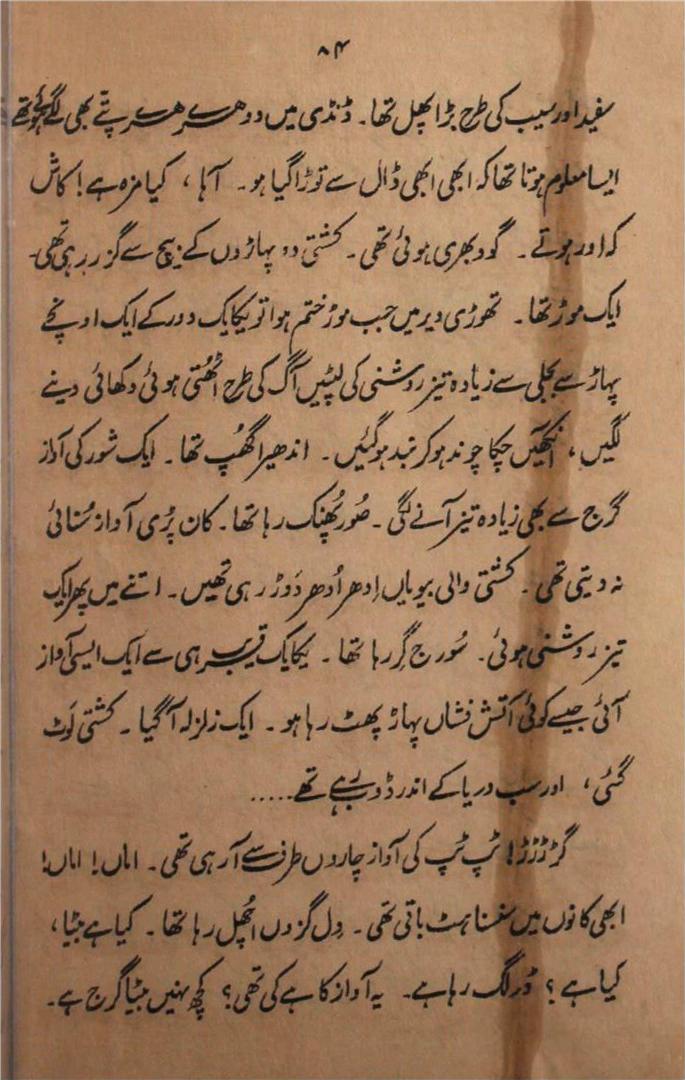 ۸۴
سفید اور سیب کی طرح بڑا پھل تھا۔ ڈنڈی میں دو ہرے ہرے پتے بھی لگے ہوئے تھے
ایسا معلوم ہوتا تھا کہ ابھی ابھی ڈال سے توڑا گیا ہو۔ آہا، کیا مزہ ہے! کاش
کہ اور ہوتے۔ گود بھری ہوئی تھی۔ کشتی دو پہاڑوں کے بیچ سے گزر رہی تھی۔
ایک موڑ تھا۔ تھوڑی دیر میں جب موڑ ختم ہوا تو یکایک دور کے ایک اونچے
پہاڑ سے بجلی سے زیادہ تیز روشنی کی لپٹیں آگ کی طرح اٹھتی ہوئی دکھائی دینے
لگیں، آنکھیں چکا چوند ہو کر بند ہو گئیں۔ اندھیرا گھُپ تھا۔ ایک شور کی آواز
گرج سے بھی زیادہ تیز آنے لگی۔ صُور پھُنک رہا تھا۔ کان پڑی آواز سُنائی
نہ دیتی تھی۔ کشتی والی بیویاں اِدھر اُدھر دَوڑ رہی تھیں۔ اتنے میں پھر ایک
تیز روشنی ہوئی۔ سُورج گِر رہا تھا۔ یکایک قریب ہی سے ایک ایسی آواز
آئی جیسے کوئی آتش فشاں پہاڑ پھٹ رہا ہو۔ ایک زلزلہ آ گیا۔ کشتی لَوٹ
گئی، اور سب دریا کے اندر ڈوب رہے تھے.....
گڑڑڑڑ! ٹپ ٹپ کی آواز چاروں طرف سے آ رہی تھی۔ اماں! اماں!
ابھی کانوں میں سنسناہٹ باقی تھی۔ دِل گزوں اُچھل رہا تھا۔ کیا ہے بیٹا،
کیا ہے؟ ڈر لگ رہا ہے۔ یہ آواز کاہے کی تھی؟ کچھ نہیں بیٹا گرج ہے۔